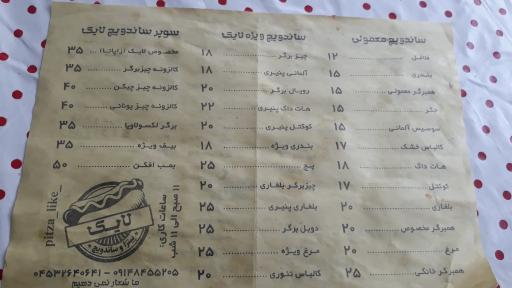 ساندویچ معمولی
فلافل ۱۲
بندری ۱۵
همبرگر معمولی ۱۵
جگر ۱۵
سوسیس آلمانی ۱۵
کالباس خشک ۱۷
هات داگ ۱۸
کوکتل ۱۷
بلغاری ۲۰
همبرگر مخصوص ۲۰
مرغ ۲۰
همبرگر خانگی ۲۵
ساندویچ ویژه لایک
چیز برگر ۱۸
آلمانی پنیری ۱۸
رویال برگر ۲۰
هات داگ پنیری ۲۲
کوکتل پنیری ۲۰
بندری ویژه ۱۸
پیچ ۲۵
چیزبرگر بلغاری ۲۰
بلغاری پنیری ۲۵
دوبل برگر ۲۵
مرغ ویژه ۲۵
کالباس تنوری ۲۰
سوپر ساندویچ لایک
مخصوص لایک (آپاچا) ۳۵
کالزونه چیزبرگر ۳۵
کالزونه چیز چیکن ۴۰
کالزونه چیز یونانی ۴۰
برگر لکسولاویا ۳۵
بیف ویژه ۳۵
بمب افکن ۵۰
pitza_like_
لایک
پیتزا و ساندویچ
ساعات کاری:
۱۱ صبح الی ۱۱ شب
۰۴۵۳۲۶۴۰۶۴۱ - ۰۹۱۴۸۴۵۵۲۰۵
ما شعار نمی دهیم